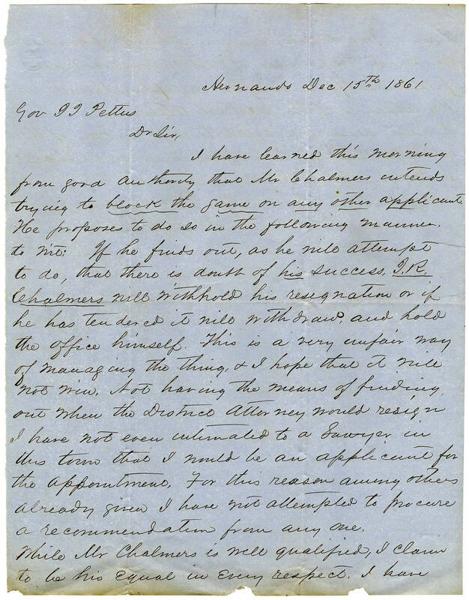 Hernando Dec 15th 1861
Gov JJ Pettus
Dr Sir,
I have learned this morning
from good authority that Mr Chalmers intends
trying to block the game on any other applicant
He proposes to do so in the following manner.
to wit: If he finds out, as he will attempt
to do, that there is doubt of his success, J.R.
Chalmers will withhold his resignation or if
he has tendered it will withdraw, and hold
the office himself. This is a very unfair way
of managing the thing, & I hope that it will
not win. Not having the means of finding
out when the District Attorney would resign
I have not even intimated to a Lawyer in
this town that I would be an applicant for
the appointment. For this reason among others
already given I have not attempted to procure
a recommendation from any one.
While Mr Chalmers is well qualified, I claim
to be his equal in every respect. I have